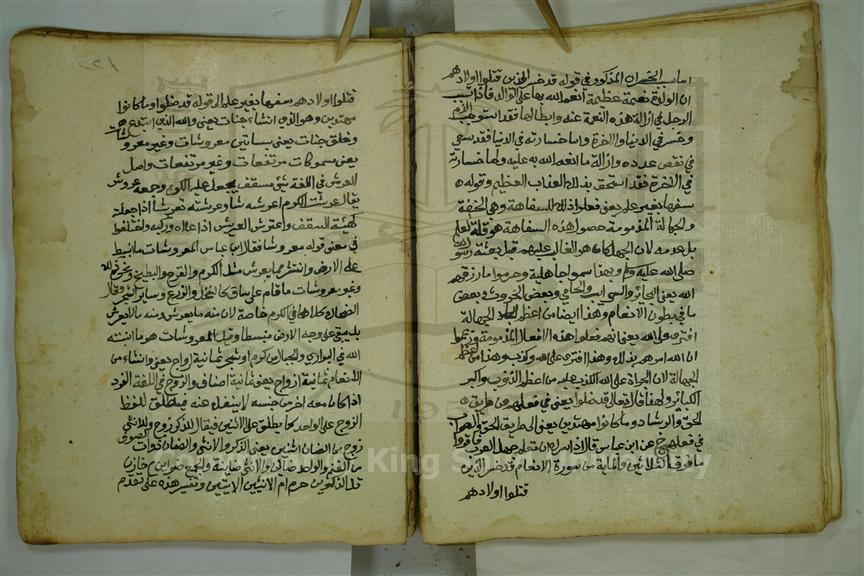 اما سبب الخسران المذكور في قوله قد خسر الذين قتلوا اولادهم
ان الولد نعمة عظيمة انعم الله بها على الوالد فاذا تسبب
الرجل في ازالة هذه النعمة عنه وابطالها فقد استوجب الذم
وخسر في الدنيا والاخرة واما خسارته في الدنيا فقد سعى
في نقص عدده وازالة ما انعم الله به عليه واما خسارته
في الاخرة فقد استحق بذلك العذاب العظيم وقوله
سفها بغير علم يعني فعلوا ذلك السفاهة وهي الخفة
والجهالة المذمومة حصول هذه السفاهة هو قلة العلم
بل عدمه لان الجهل كان هو الغالب عليهم قبل بعثة رسول الله
صلى الله عليه ولم ولهذا سموا جاهلية وحرموا ما رزقهم
الله يعني البحائر والسوائب والحامي وبعض الحروث وبعض
ما في بطون الانعام وهذا ايضا من اعظم الجهالة
افترى على الله يعني انهم فعلوا هذه الافعال المذمومة وزعموا
ان الله امرهم بذلك وهذا افترى على الله وكذب وهذا من اعظم
الجهالة لان الجراة على الله الكذب عليه من اعظم الذنوب واكبر
الكبائر ولهذا قال تعالى قد ضلوا يعني في فعلهم عن طريق
الحق والرشاد وما كانوا مهتدين يعني الى طريق الحق والصواب
في فعلهم خ عن ابن عباس قال اذا سرك ان تعلم جهل العرب فاقروا
ما فوق الثلاثين والماية من سورة الانعام قد خسر الذين
قتلوا اولادهم
١٢٢
قتلوا اولادهم سفها بغير علم الى قوله قد ضلوا وما كانوا
مهتدين وهو الذي انشاء جنات يعني والله الذي ابتدع
وخلق جنات يعني بساتين معروشات وغير معروشات
يعني مسموكات مرتفعات وغير مرتفعات واصل
العرش في اللغة شي مسقف يجعل عليه الكرم وجمعه عروش
يقال عرشت الكرم اعرشه عرشا وعرشته تعريشا اذا جعلته
كهيئة السقف واعترش العنب العريش اذا علاه وركبه واختلفوا
في معنى قوله معروشات فقال ابن عباس المعروشات ما انبسط
على الارض وانتشر مما يعرش مثل الكرم والقرع والبطيخ ونحو ذلك
وغير معروشات ما قام على ساق كالنخل والزرع وسائر الشجر وقال
الضحاك كلاهما في الكرم خاصة لان منه ما يعرش ومنه ما لا يعرش
بل يبقى على وجه الارض منبسطا وقيل المعروشات هو ما انبته
الله في البواري والجبال من كرم او شجر ثمانية ازواج يعني وانشاء من
الانعام ثمانية ازواج يعني ثمانية اصناف والزوج في اللغة الفرد
اذا كان معه اخر من جنسه لا ينفك عنه فيطلق لفظ
الزوج على الواحد كما يطلق على الاثنين فيقال للذكر زوج وللانثى
زوج من الضان اثنين يعني الذكر والانثى والضان ذوات الصوف
من الغنم والواحد ضائن والانثى ضائنة والجمع ضوائن خازن
قل الذكرين حرم ام الانثيين الايتين وتفسير هذه على تقدم